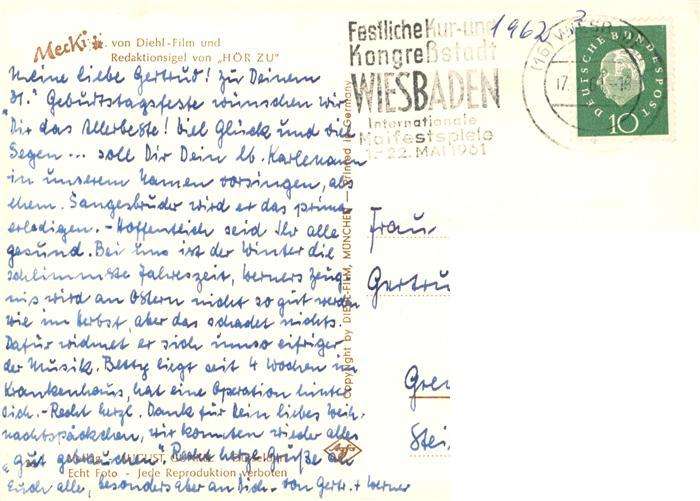 Mecki von Diehl-Film und
Redaktionsigel von „HÖR ZU"
Meine liebe Gertrud! Zu Deinem
31." Geburtstagsfeste wünschen wir
"Dir das Allerbeste! Viel Glück und viel
Segen... soll Dir Dein lb. Karlemann
in unserem Namen vorsingen, als
ehem. Sangesbruder wird er das prima
erledigen. - Hoffentlich seid Ihr alle
gesund. Bei uns ist der Winter die
schlimmste Jahreszeit, Werners Zeug-
nis wird an Ostern nicht so gut werden
wie im Herbst, aber das schadet nichts.
Dafür widmet er sich umso eifriger
der Musik. Betty liegt seit 4 Wochen im
Krankenhaus, hat eine Operation hinter
sich. - Recht herzl. Dank für Dein liebes Weih-
nachtspäckchen, wir konnten wieder alles
"gut gebrauchen". Recht herzl. Grüße an
Echt Foto - Jede Reproduktion verboten
Euch alle, besonders aber an Dich. - von Gertr. + Werner
Copyright by DIEHL-FILM, MÜNCHEN — Printed in Germany
Festliche Kur-und
Kongreßstadt
WIESBADEN
Internationale
Maifestspiele
1.-22. MAI 1961
1962
(16) WIESB
17.
DEUTSCHE BUNDESPOST
10
Frau
Gertru
Gren
Stei